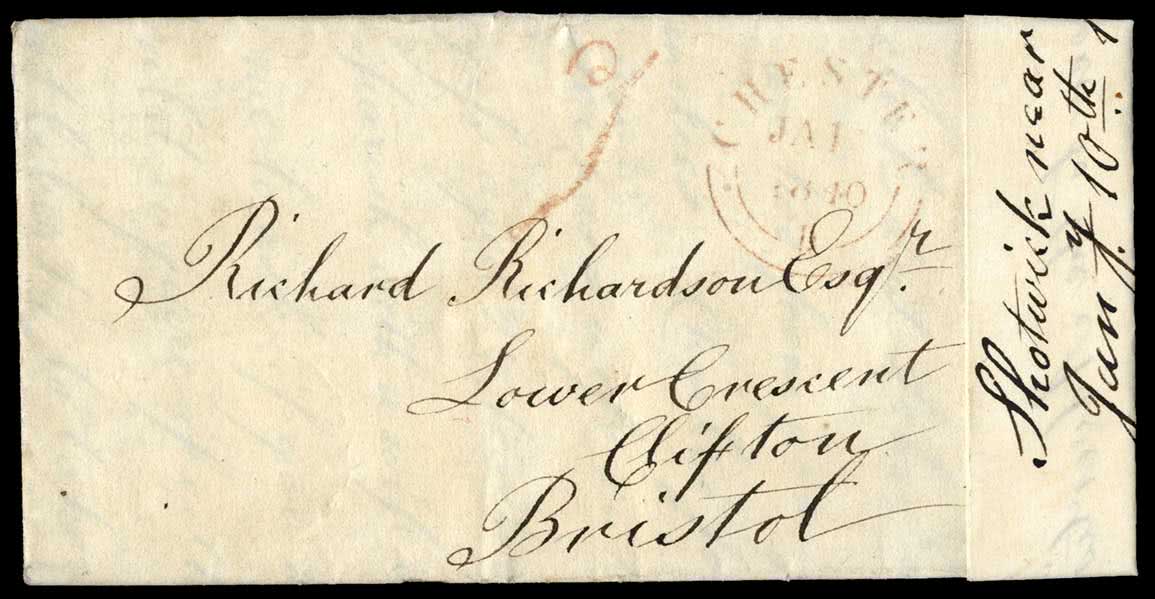 CHESTER
JA 1
1840
Richard Richardson Esqr.
Lower Crescent
Clifton
Bristol
Shotwick near
Jany. 10th 1